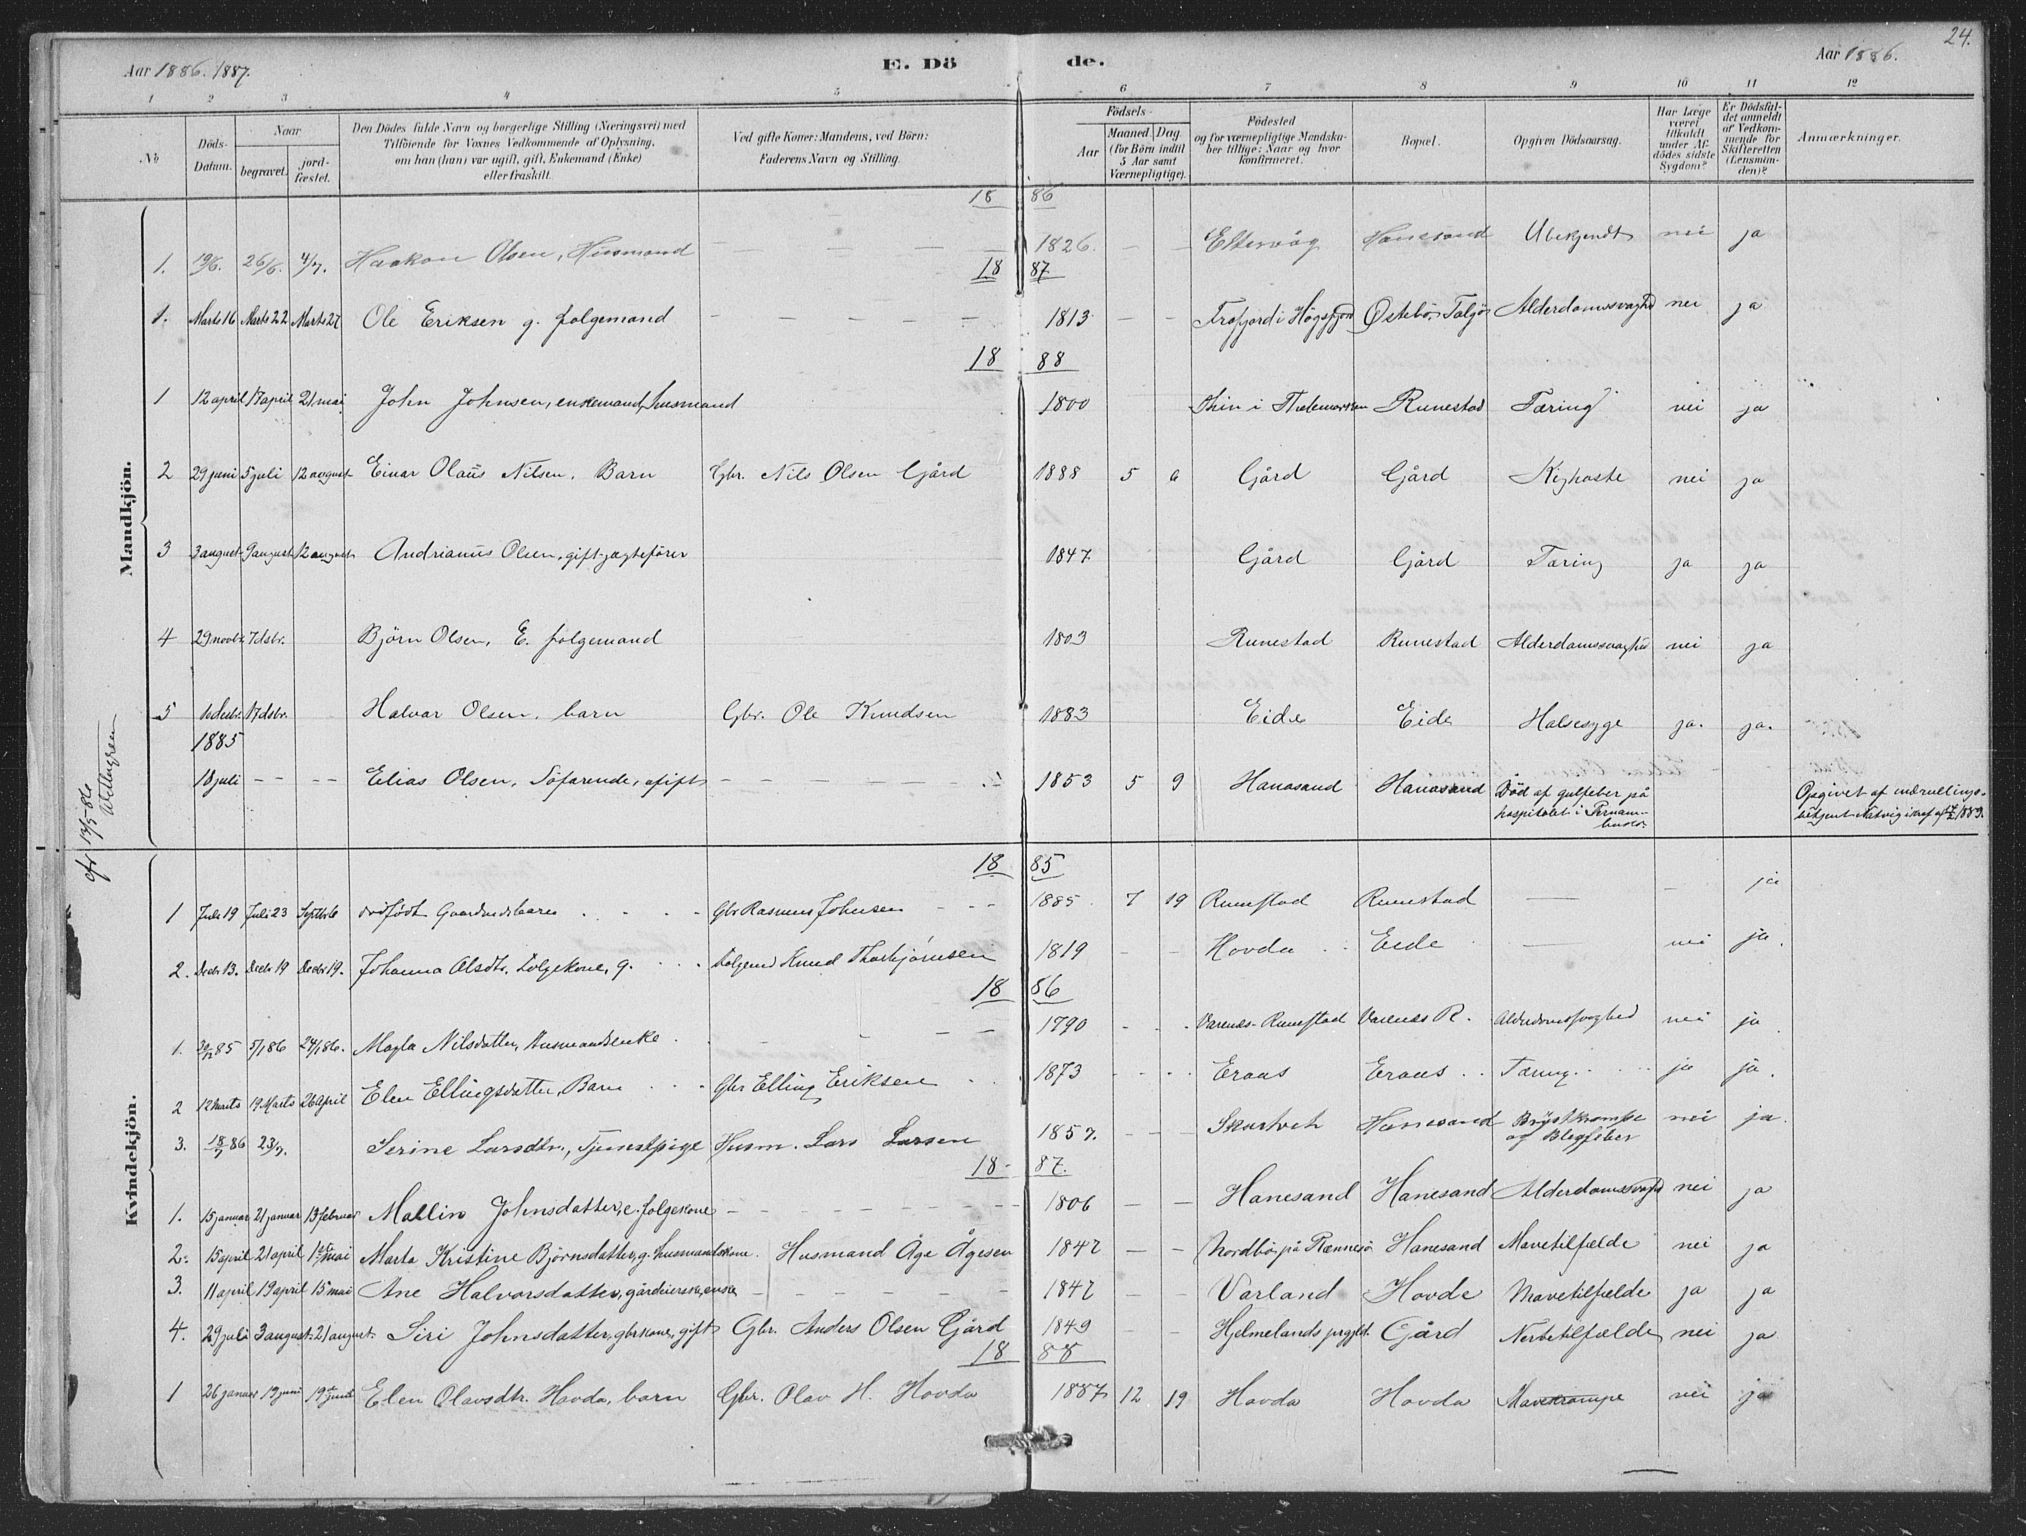 24.
Aar 1886. 1887.
E. Dö
de.
Aar 1886.
1 2 3 4 5 6 7 8 9 10 11 12
No
Döds-Datum.
Naar
begravet.
jord-fæstet.
Den Dödes fulde Navn og borgerlige Stilling (Næringsvei) med
Tilföiende for Voxnes Vedkommende af Oplysning,
om han (hun) var ugift, gift, Enkemand (Enke)
eller fraskilt.
Ved gifte Koner: Mandens, ved Börn:
Faderens Navn og Stilling.
Födsels-
Aar
Maaned Dag
(for Börn indtil
5 Aar samt
Værnepligtige).
Födested
og for værnepligtige Mandska-
ber tillige: Naar og hvor
konfirmeret.
Bopæl.
Opgiven Dödsaarsag.
Har Læge
været
tilkaldt
under Af-
dödes sidste
Sygdom?
Er Dödsfal-
det anmeldt
af Vedkom-
mende for
Skifteretten
(Lensman-
den)?
Anmærkninger.
Mandkjön.
18 86
1. 19/6. 26/6. 4/7. Haakon Olsen, Husmand 1826. — — Eltervåg Hanesand Ubekjendt nei ja
18 87
1. Marts 16 Marts 22 Marts 27 Ole Eriksen g. folgemand 1813 — — Frafjord i Högsfjord Østebö, Talgö Alderdomssvaghed nei ja
18 88
1 12 april 17 april 21 mai John Johnsen, enkemand, husmand 1800 Skin i Thelemarken Runestad Tæring nei ja
2 29 juni 5 juli 12 august Einar Olaus Nilsen, Barn Gbr. Nils Olsen Gård 1888 5 6 Gård Gård Kighoste nei ja
3 3 august 9 august 12 august Andrianus Olsen, gift, jægtefører 1847. Gård Gård Tæring ja ja
4 29 novbr. 7 dsbr. Bjørn Olsen, E. folgemand 1803 Runestad Runestad Alderdomssvaghed nei ja
5 10 desbr. 17 dsbr. Halvar Olsen, barn Gbr. Ole Knudsen 1883 Eide Eide Halsesyge ja. ja.
1885
18 juli — — — — Elias Olsen, Söfarende, ugift — — — — 1853 5 9 Hanasand Hanasand Död af gulfeber på
hospitalet i Pernam-
buco.
Opgivet af indrullerings-
betjent Natvig i skr. af 1889.
cfr 13/5-86
Kvindekjön.
18 85
1 Juli 19 Juli 23 Septbr 6 dødfødt Gaardmandsbarn Gbr Rasmus Johnsen 1885 7 19 Runestad Runestad — — ja
2. Decbr 13. Decbr 19 Decbr 19. Johanna Olsdtr. Folgekone, g. Folgemd Knud Thorbjørnsen 1819 — — Hovda Eide — nei ja.
18 86
1. 30/12 85 5/1 86 24/1 86. Magla Nilsdatter, Husmandsenke 1790 Varenes-Runestad Varenes R. Alderdomssvaghed nei ja
2 12 Marts 19 Marts 26 April Elen Ellingsdatter, Barn Gbr Elling Eriksen 1873 Eraas Eraas Tæring ja ja.
3. 18/7 86 23/7. Serine Larsdtr., Tjenestpige Husm. Lars Larsen 1857. — — Skartveit Hanesand Brystkrampe
og Blegfeber nei ja.
18 87.
1. 15 januar 21 januar 13 februar Mallin Johnsdatter, e. folgekone 1806 — — Hanesand Hanesand Alderdomssvaghed nei ja
2. 15 april 21 april 1ste mai Marta Kristine Bjørnsdatter, g. husmandskone. Husmand Åge Ågesen 1847 — — Nordbö, på Rennesö Hanesand Mavetilfælde nei ja
3. 11 april 19 april 15 mai Ane Halvorsdatter, gårdeierske, enke 1847 Varland Hovde Mavetilfælde ja ja
4. 29 juli 3 august. 21 august. Siri Johnsdatter, gbrkone, gift Gbr. Anders Olsen Gård 1849 Hjelmelands prgjld. Gård Nervetilfælde nei ja
18 88
1 26 januar 19 juni 19de juni Elen Olavsdtr. Hovda, barn Gbr. Olav H. Hovda 1887 12 19 Hovda Hovda Mavekrampe nei ja